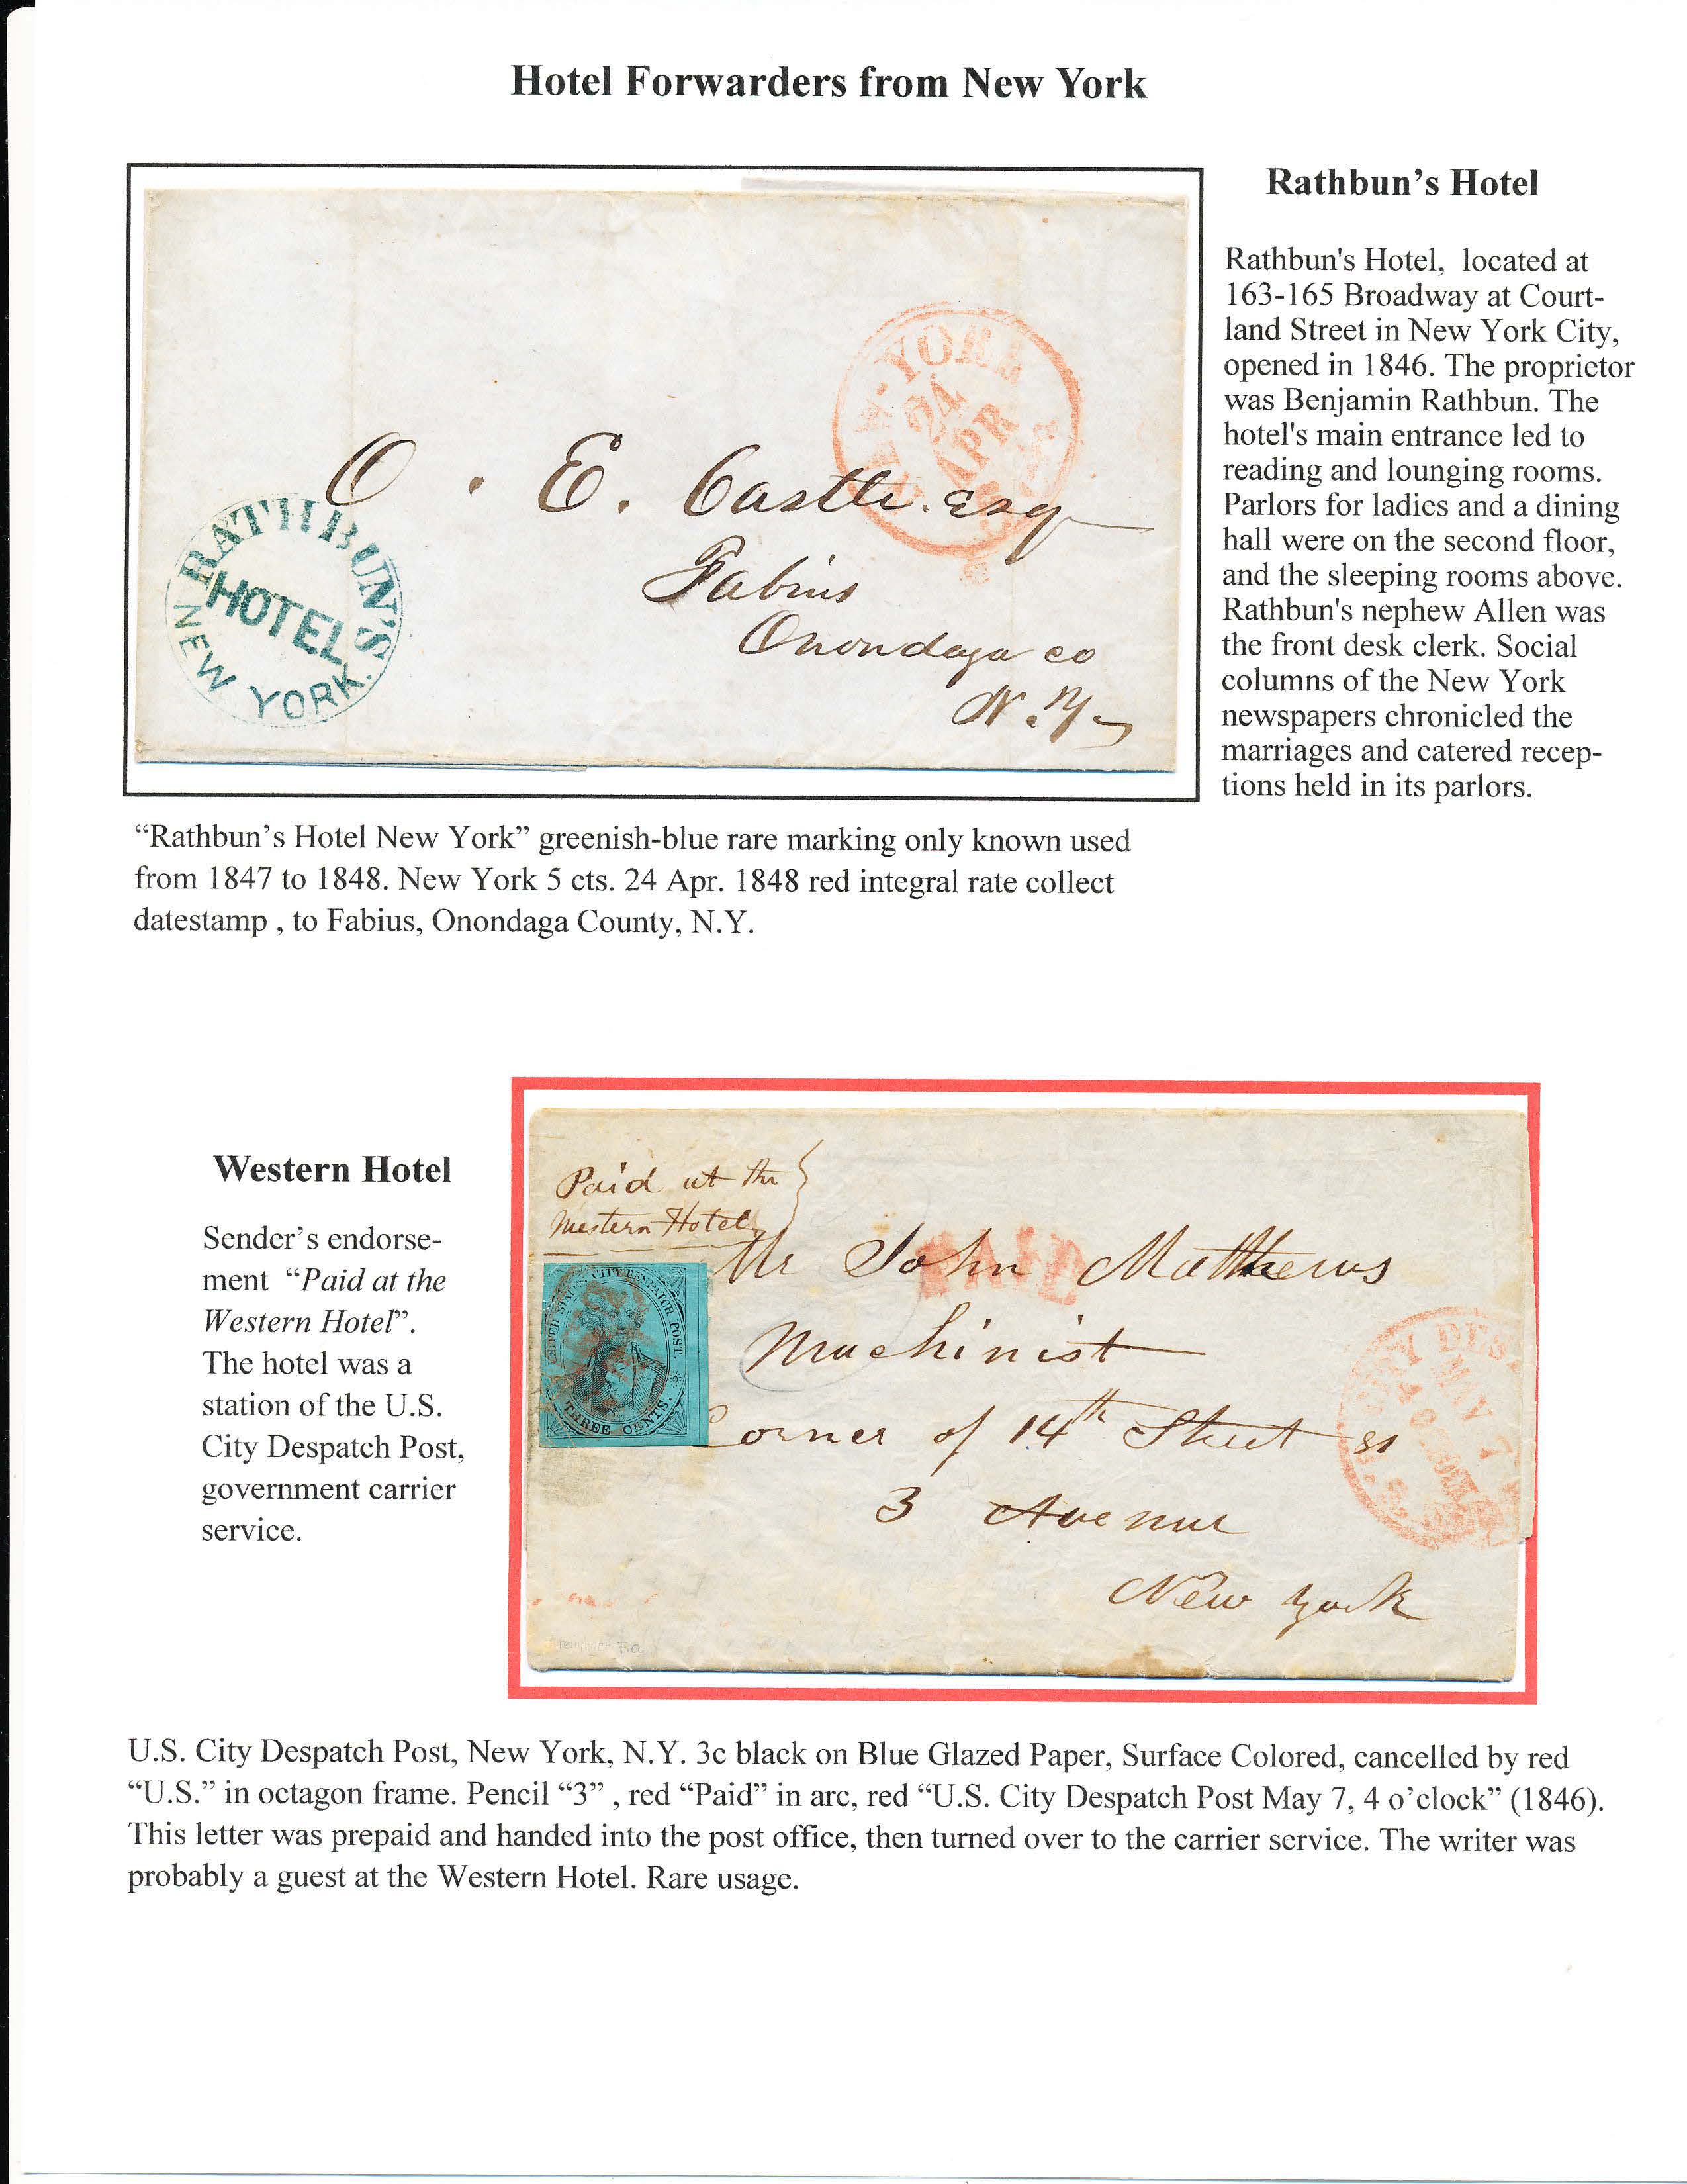 Hotel Forwarders from New York
Rathbun's Hotel
Rathbun's Hotel, located at
163-165 Broadway at Court-
land Street in New York City,
opened in 1846. The proprietor
was Benjamin Rathbun. The
hotel's main entrance led to
reading and lounging rooms.
Parlors for ladies and a dining
hall were on the second floor,
and the sleeping rooms above.
Rathbun's nephew Allen was
the front desk clerk. Social
columns of the New York
newspapers chronicled the
marriages and catered recep-
tions held in its parlors.
NEW-YORK
24
APR
O. E. Castle. Esq
Fabius
Onondaga co
N.Y.
RATHBUN'S
HOTEL
NEW YORK.
“Rathbun’s Hotel New York” greenish-blue rare marking only known used
from 1847 to 1848. New York 5 cts. 24 Apr. 1848 red integral rate collect
datestamp , to Fabius, Onondaga County, N.Y.
Western Hotel
Sender’s endorse-
ment “Paid at the
Western Hotel”.
The hotel was a
station of the U.S.
City Despatch Post,
government carrier
service.
Paid at the
Western Hotel
PAID
UNITED STATES CITY DESPATCH POST.
THREE CENTS.
Mr John Matthews
Machinist
Corner of 14th Street &
3 Avenue
New York
MAY 7
4
U.S. City Despatch Post, New York, N.Y. 3c black on Blue Glazed Paper, Surface Colored, cancelled by red
“U.S.” in octagon frame. Pencil “3” , red “Paid” in arc, red “U.S. City Despatch Post May 7, 4 o’clock” (1846).
This letter was prepaid and handed into the post office, then turned over to the carrier service. The writer was
probably a guest at the Western Hotel. Rare usage.